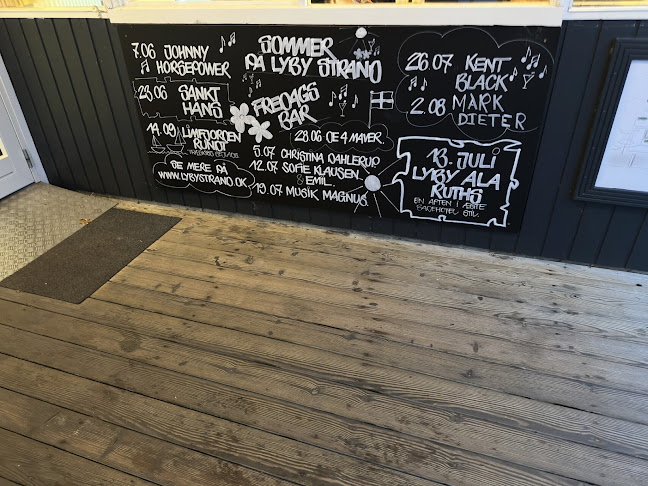 7.06 JOHNNY
HORSEPOWER
23.06 SANKT
HANS
14.09 LIMFJORDEN
RUNDT
SE MERE PÅ
WWW.LYBYSTRAND.DK
SOMMER
PÅ LYBY STRAND
FREDAGS
BAR
28.06 DE 4 MAVER.
5.07 CHRISTINA DAHLERUP
12.07 SOFIE KLAUSEN
& EMIL.
19.07 MUSIK MAGNUS
26.07 KENT
BLACK
2.08 MARK
DIETER
13. JULI
LYBY ALA
RUTHS
EN AFTEN I ÆGTE
BADEHOTEL STIL.